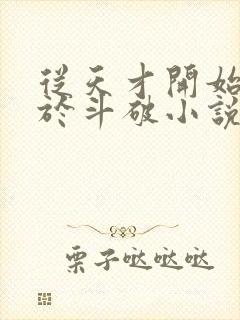 從天才開始
於斗破小說
栗子哒哒哒